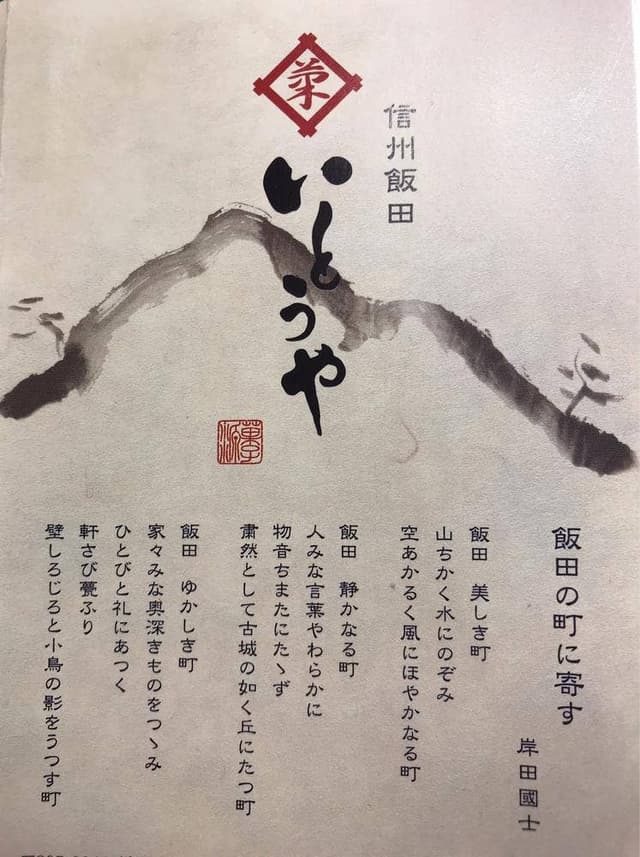 菜
信州飯田
いとうや
飯田の町に寄す
岸田國士
飯田 美しき町
山ちかく水にのぞみ
空あかるく風にほやかなる町
飯田 静かなる町
人みな言葉やわらかに
物音ちまたにたゝず
粛然として古城の如く丘にたつ町
飯田 ゆかしき町
家々みな奥深きものをつゝみ
ひとびと礼にあつく
軒さび甍ふり
壁しろじろと小鳥の影をうつす町